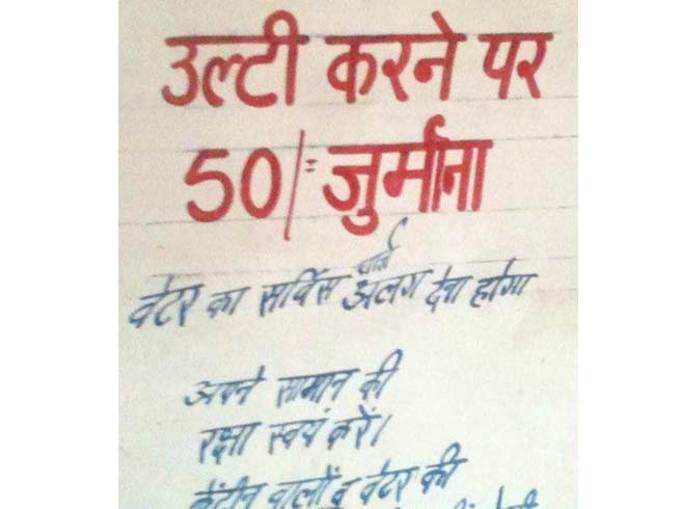 उल्टी करने पर
50/= जुर्माना
वेटर का सर्विस चार्ज अलग देना होगा
अपने सामान की
रक्षा स्वयं करें।
केंटीन वालों व वेटर की